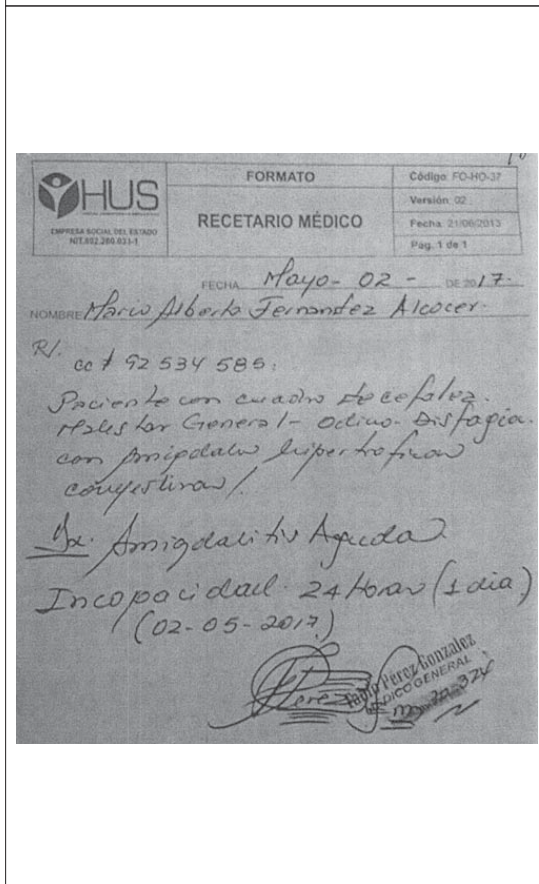 HUS
EMPRESA SOCIAL DEL ESTADO
NIT.892.280.033-1
FORMATO
RECETARIO MÉDICO
Código: FO-HO-37
Versión: 02
Fecha: 21/06/2013
Pag. 1 de 1
FECHA Mayo - 02 - DE 2017.
NOMBRE Mario Alberto Fernandez Alcocer.
R/.
cc # 92 534 585.
Paciente con cuadro de cefalea.
Malestar General - Odino. Disfagia.
con Amigdalas hipertroficas
congestivas/.
Dx. Amigdalitis Aguda
Incapacidad. 24 Horas (1 dia)
(02-05-2017)
Perez Gonzalez
MÉDICO GENERAL